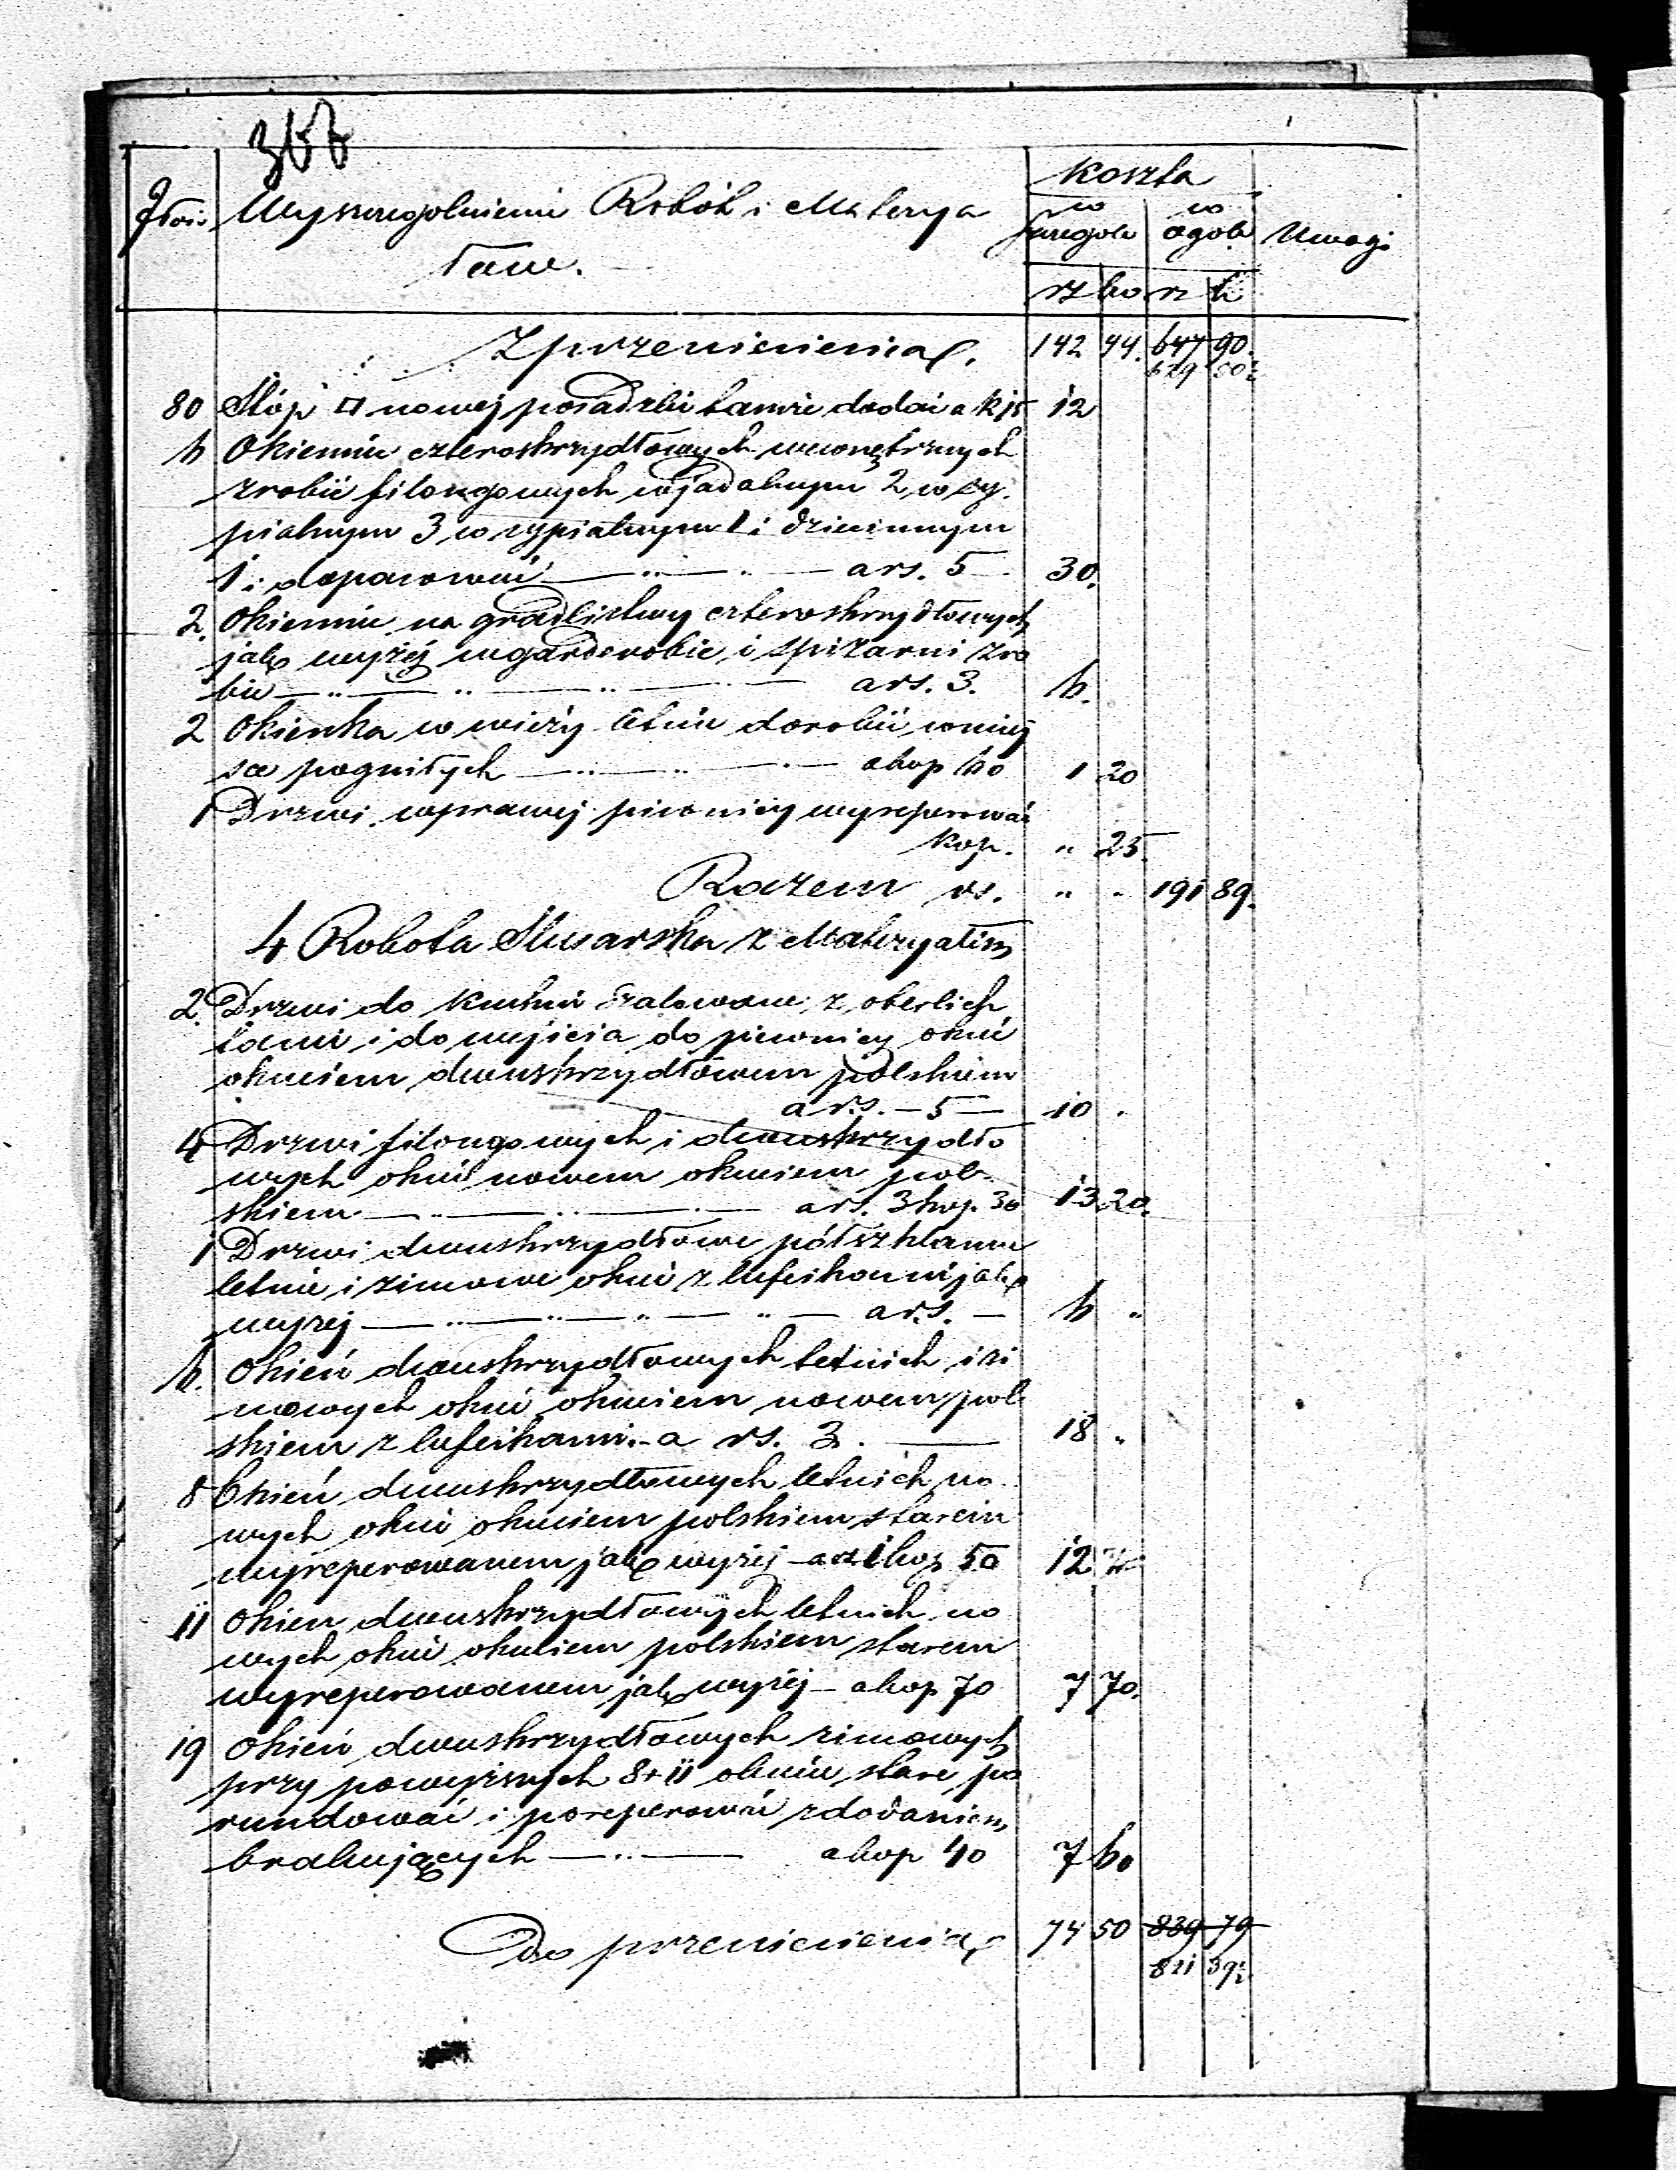 366
Ilość Wyszczegolnienie Robót i Materya
łów.
Koszta
w szczegole w ogole Uwagi
rs ko rs k
Z przeniesienia 142 44. 647 90.
629 50½
80 Stóp □ nowej posadzki tamże dodać a k 15 12
6 Okiennic czteroskrzydłowych wewnętrznych
zrobić filongowych w jadalnym 2, w sy-
pialnym 3, w sypialnym 1 i dziecinnym
1 i dopasować — ars. 5 — 30.
2. Okiennic na czteroskrzydłowych
jako wyżej w garderobie i spiżarni zro
bić — ars. 3. 6.
2 Okienka w wieży letnie dorobić w miej
sce pognitych — akop 60 1 20
1 Drzwi w prawej piwnicy wyreperować
kop. " 25.
Razem rs. " " 191 89.
4 Robota Slusarska z Materyałem
2. Drzwi do kuchni z oberlich
tami i do wejscia do piwnicy okuć
okuciem dwuskrzydłowem polskiem
a rs. — 5 — 10 .
4 Drzwi filongowych i dwuskrzydło
wych okuć nowem okuciem pol-
skiem — ars. 3 kop. 30 13 20.
1 Drzwi dwuskrzydłowe półszklanne
letnie i zimowe okuć z lufcikami jako
wyżej — ars. — 6 "
6. Okien dwuskrzydłowych letnich i zi
mowych okuć okuciem nowem pol
skiem z lufcikami. — a rs. 3. — 18 "
8 Okien dwuskrzydłowych letnich no
wych okuć okuciem polskiem starem
wyreperowanem jako wyżej — a rs 1 kop 50 12
11 Okien dwuskrzydłowych letnich no
wych okuć okuciem polskiem starem
wyreperowanem jako wyżej — akop 70 7 70.
19 Okien dwuskrzydłowych zimowych
przy powyższych 8 + 11 okucie stare po
rundować i poreperować z dodaniem
brakujących — akop 40 7 60
Do przeniesienia 74 50 839 79
821 39½